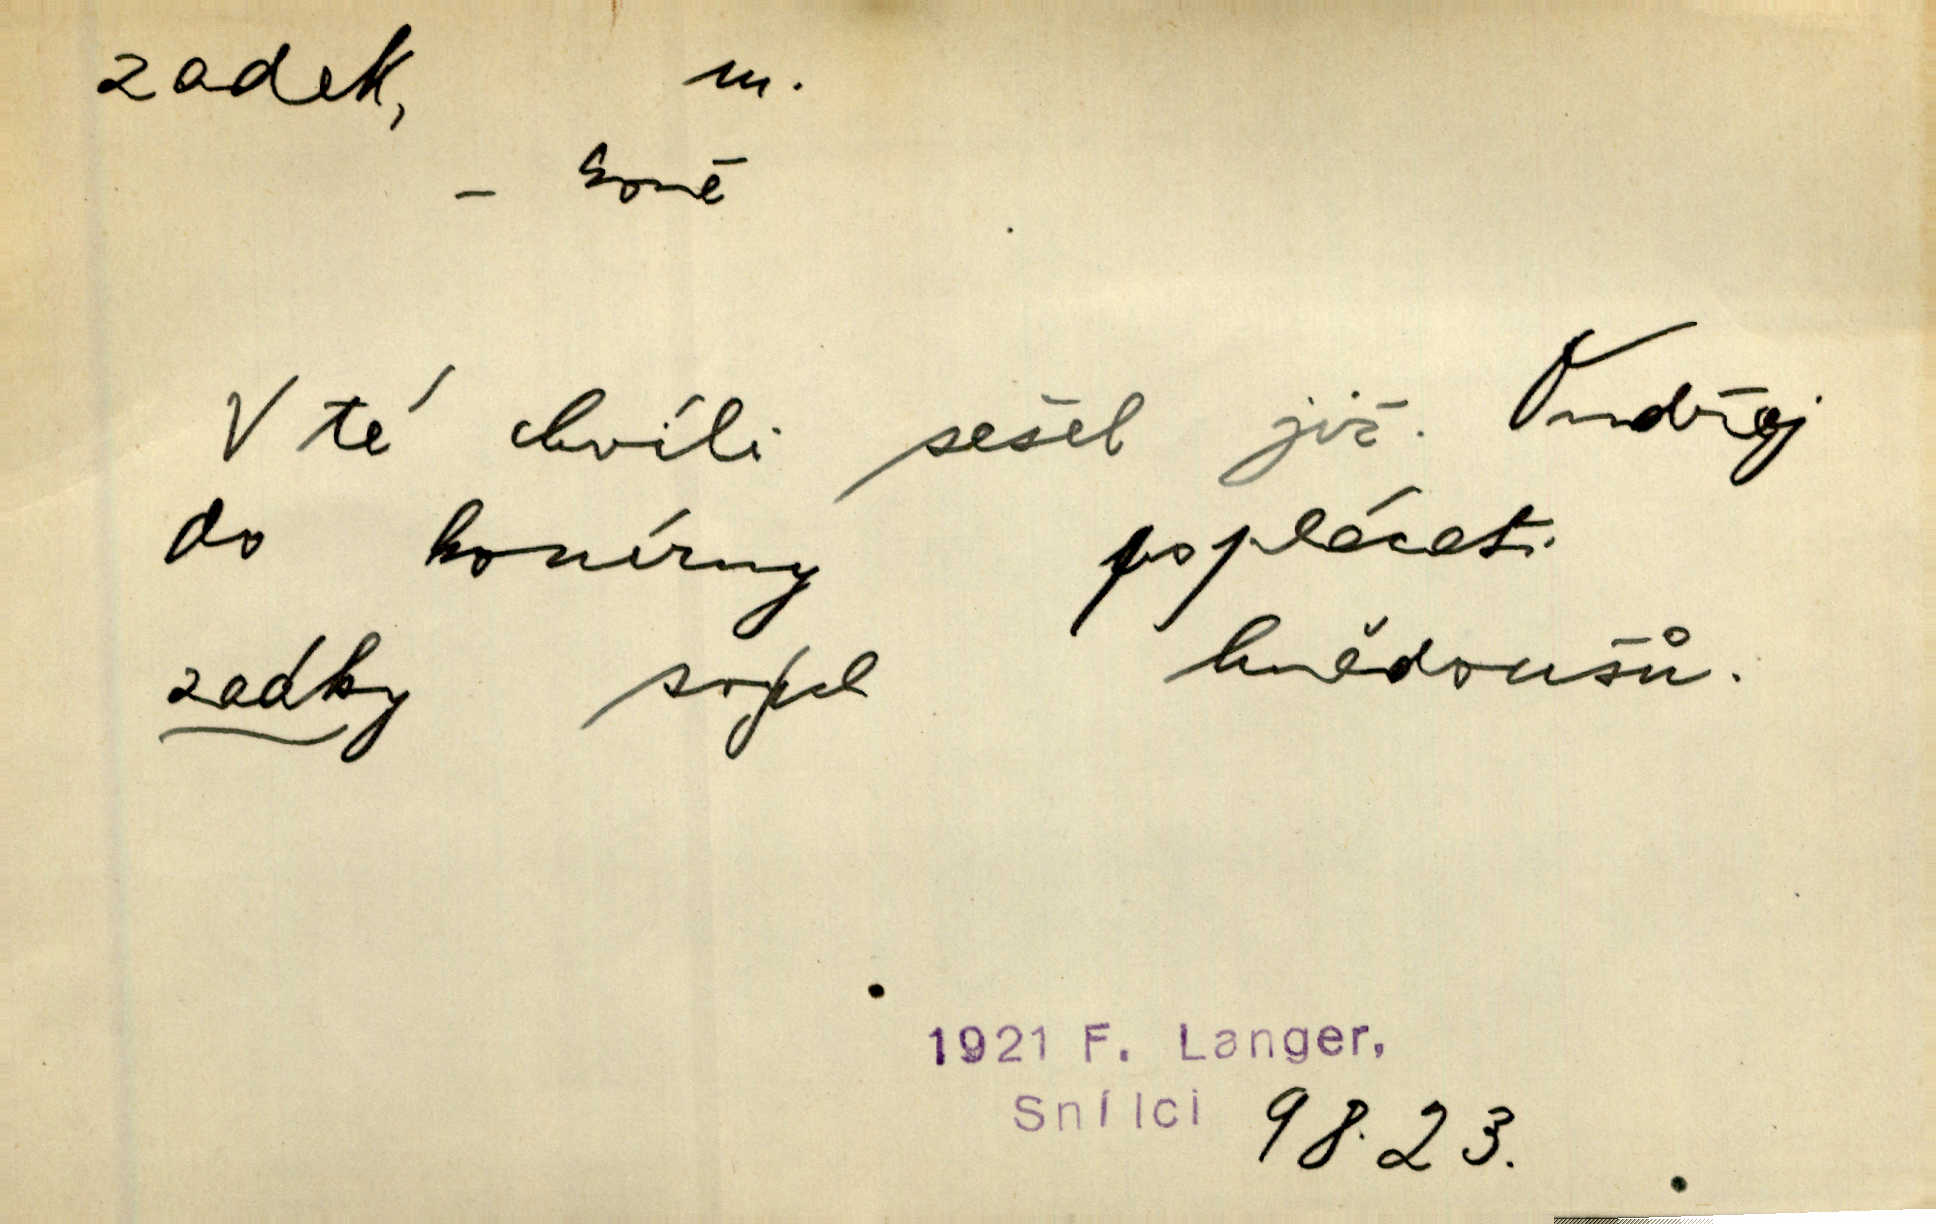 zadek, m.
– koně
V té chvíli sešel již Ondřej
do konírny poplácati
zadky svých hnědoušů.
1921 F. Langer,
Snílci 98.23.